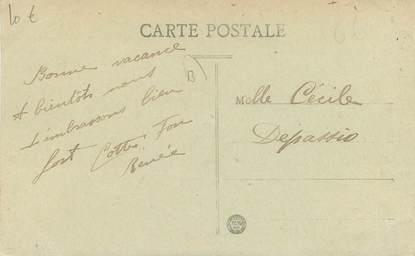 10 €
CARTE POSTALE
Bonne vacance
A bientôt nous
t'embrassons bien
fort
Renée
B
Melle Cécile
Depassio